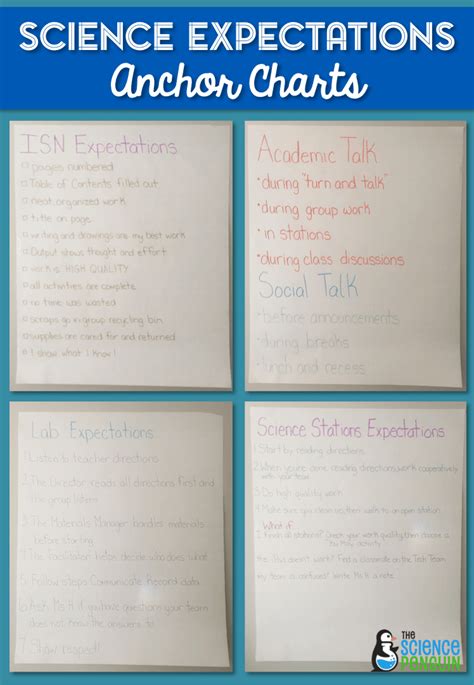 SCIENCE EXPECTATIONS
Anchor Charts
ISN Expectations
pages numbered
Table of Contents filled out
neat organized work
title on page
writing and drawings are my best work
Output shows thought and effort
work is HIGH QUALITY
all activities are complete
no time was wasted
scraps go in group recycling bin
supplies are cared for and returned
I show what I know!
Academic Talk
•during "turn and talk"
•during group work
•in stations
•during class discussions
Social Talk
•before announcements
•during breaks
•lunch and recess
Lab Expectations
1. Listen to teacher directions
2. The Director reads all directions first and
the group listens
3. The Materials Manager handles materials
before starting
4. The Facilitator helps decide who does what
5. Follow steps Communicate Record data
6. Ask Ms. H if you have question your team
does not know the answers to
7. Show respect!
Science Stations Expectations
1. Start by reading directions.
2. When you're done reading directions, work cooperatively
with your team
3. Do high quality work
4. Make sure you clean up, then walk to an open station
What if
work, then choose a
activity
doesn't work? Find a classmate on the Tech Team
my team Write Ms. H a note.
THE
SCIENCE
PENGUIN